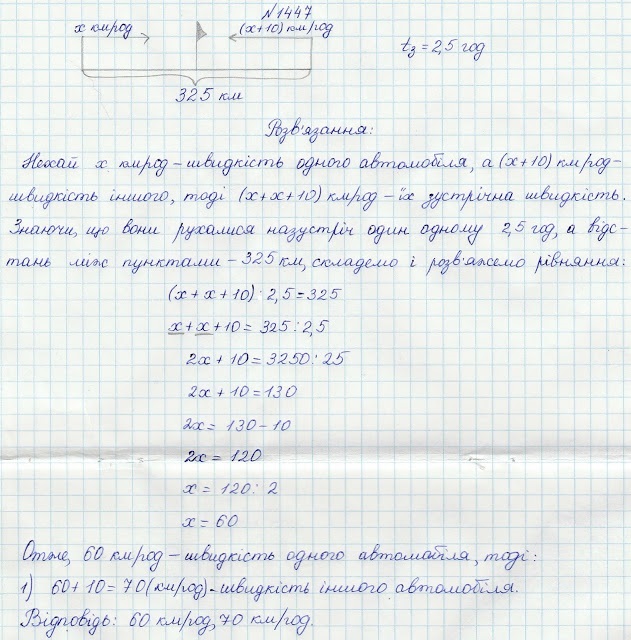 №1447
x км/год
(x+10) км/год
tз = 2,5 год
325 км
Розв'язання:
Нехай x км/год – швидкість одного автомобіля, а (x+10) км/год –
швидкість іншого, тоді (x+x+10) км/год – їх зустрічна швидкість.
Знаючи, що вони рухалися назустріч один одному 2,5 год, а відс-
тань між пунктами – 325 км, складемо і розв'яжемо рівняння:
(x + x + 10) · 2,5 = 325
x + x + 10 = 325 : 2,5
2x + 10 = 3250 : 25
2x + 10 = 130
2x = 130 – 10
2x = 120
x = 120 : 2
x = 60
Отже, 60 км/год – швидкість одного автомобіля, тоді:
1) 60 + 10 = 70 (км/год) - швидкість іншого автомобіля.
Відповідь: 60 км/год, 70 км/год.